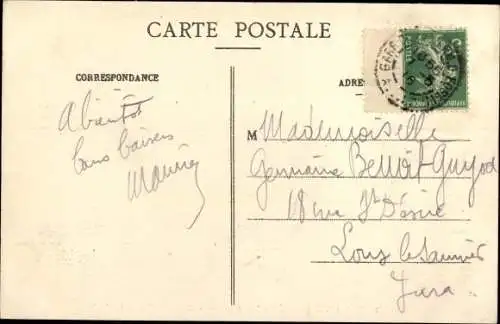 CARTE POSTALE
CORRESPONDANCE
ADRES
A bientôt
bons baisers
Maurice
M Mademoiselle
Germaine Benoit-Guyod
18 rue St Désiré
Lons le Saunier
Jura